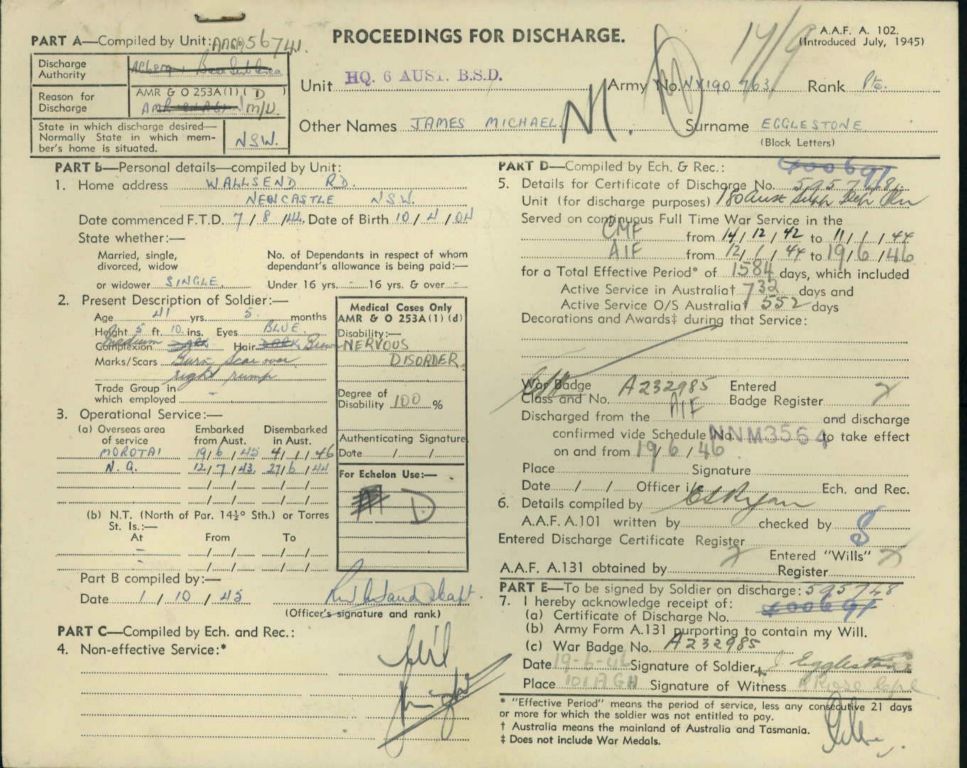 PART A—Compiled by Unit:
PROCEEDINGS FOR DISCHARGE.
A.A.F. A. 102.
(Introduced July, 1945)
17/9
Discharge Authority
Reason for Discharge
AMR & O 253A(1) ( D )
M/U.
State in which discharge desired—
Normally State in which mem-
ber's home is situated.
NSW.
Unit HQ. 6 AUST. B.S.D. Army No. NX190763. Rank Pte.
Other Names JAMES MICHAEL Surname EGGLESTONE
(Block Letters)
PART B—Personal details—compiled by Unit:
1. Home address WALLSEND RD.
NEWCASTLE NSW.
Date commenced F.T.D. 7 / 8 / 44. Date of Birth 10 / 4 / 04
State whether:—
Married, single, divorced, widow or widower SINGLE.
No. of Dependants in respect of whom dependant's allowance is being paid:—
Under 16 yrs. - 16 yrs. & over -
2. Present Description of Soldier:—
Age 41 yrs. 5 months
Height 5 ft. 10 ins. Eyes BLUE.
Complexion Medium Hair Brown
Marks/Scars Burn Scar over
right rump
Trade Group in which employed -
Medical Cases Only
AMR & O 253A(1) (d)
Disability:—
NERVOUS
DISORDER.
Degree of Disability 100 %
Authenticating Signature
Date / /
For Echelon Use:—
D
3. Operational Service:—
(a) Overseas area of service
Embarked from Aust.
Disembarked in Aust.
MOROTAI 19/6/45 4/1/46
N.G. 12/7/43 27/6/44
(b) N.T. (North of Par. 14½° Sth.) or Torres
St. Is.:—
At From To
- / / / /
Part B compiled by:—
Date 1 / 10 / 45
(Officer's signature and rank)
PART C—Compiled by Ech. and Rec.:
4. Non-effective Service:*
Nil
PART D—Compiled by Ech. & Rec.:
400691
5. Details for Certificate of Discharge No. 595748
Unit (for discharge purposes)
Served on continuous Full Time War Service in the
CMF from 14/12/42 to 11/1/44
AIF from 12/1/44 to 19/6/46
for a Total Effective Period* of 1584 days, which included
Active Service in Australia† 732 days and
Active Service O/S Australia† 552 days
Decorations and Awards‡ during that Service:
War Badge Class and No. A232985 Entered Badge Register
Discharged from the AIF and discharge
confirmed vide Schedule No. NNM3564 to take effect
on and from 19/6/46
Place Signature
Date / / Officer i/c Ech. and Rec.
6. Details compiled by
A.A.F. A.101 written by checked by
Entered Discharge Certificate Register
A.A.F. A.131 obtained by Entered "Wills" Register
PART E—To be signed by Soldier on discharge: 595748
7. I hereby acknowledge receipt of:
(a) Certificate of Discharge No. 400691
(b) Army Form A.131 purporting to contain my Will.
(c) War Badge No. A232985
Date 19-6-46 Signature of Soldier J Egglestone
Place 101 AGH Signature of Witness
* "Effective Period" means the period of service, less any consecutive 21 days
or more for which the soldier was not entitled to pay.
† Australia means the mainland of Australia and Tasmania.
‡ Does not include War Medals.